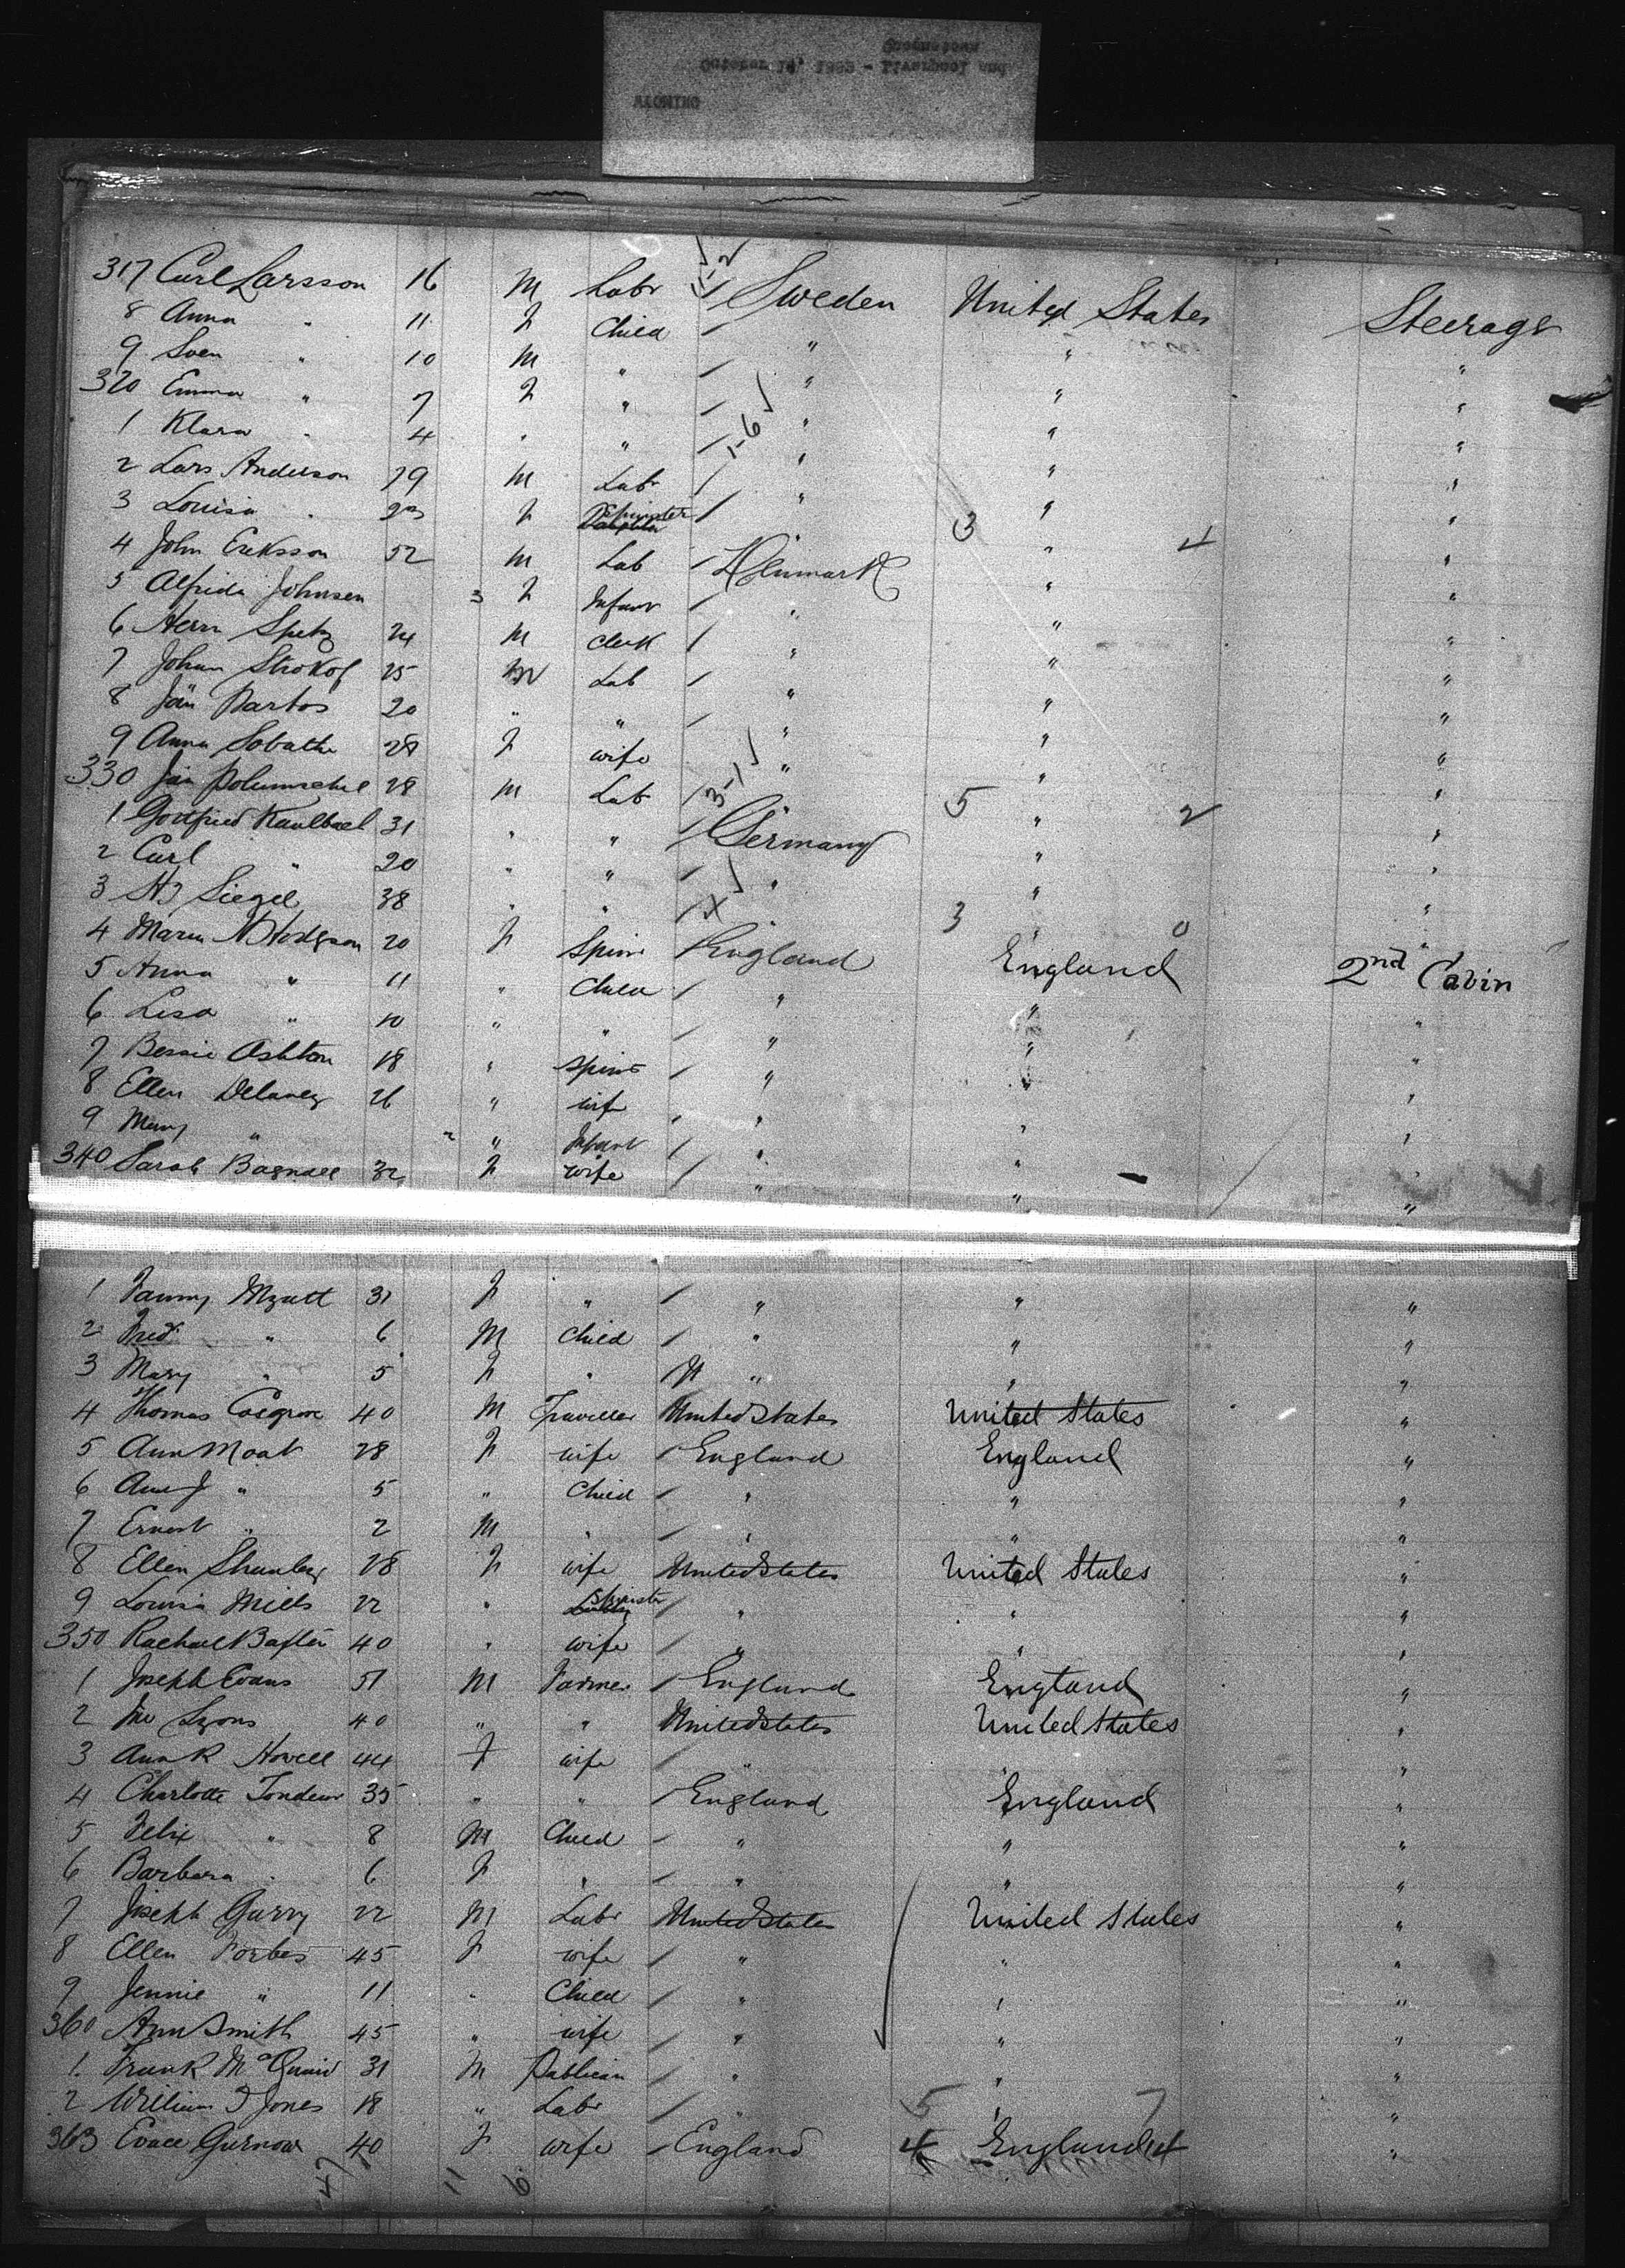 Queenstown
October 14, 1883 - Liverpool and
WYOMING
317 Carl Larsson 16 M Labr / Sweden United States Steerage
8 Anna " 11 F Child / " " "
9 Sven " 10 M " / " " "
320 Emma " 7 F " / " " "
1 Klara " 4 " " / " " "
2 Lars Anderson 19 M Labr / " " "
3 Louisa " F Spinster / " " "
4 John Eriksson 52 M Lab / Denmark " "
5 Alfrida Johnsen 3 F Infant / " " "
6 Herm Spetz 24 M Clerk / " " "
7 Johan Strokof 25 M Lab / " " "
8 Ján Bartos 20 " " / " " "
9 Anna 28 F wife / " " "
330 Ján 28 M Lab / " " "
1 Gottfried Kaulbael 31 " " / Germany " "
2 Carl " 20 " " / " " "
3 Siegel 38 " " / " " "
4 Hodgson 20 F Spins / England England 2nd Cabin
5 Anna " 11 " Child / " " "
6 Lisa " 10 " " / " " "
7 Bessie Ashton 18 " Spins / " " "
8 Ellen Delaney 26 " wife / " " "
9 Mary " " Infant / " " "
340 Sarah Bagnall 32 F wife / " " "
1 Fanny Myatt 31 F " / " " "
2 Fred " 6 M Child / " " "
3 Mary " 5 F " / " " "
4 Thomas Cosgrove 40 M Traveller United States United States "
5 Ann Moat 28 F wife / England England "
6 Ann J " 5 " Child / " " "
7 Ernest " 2 M " / " " "
8 Ellen 28 F wife United States United States "
9 Louisa Mills 22 " Spinster / " " "
350 Rachael 40 " wife / " " "
1 Joseph Evans 51 M Farmer / England England "
2 Lyons 40 " " United States United States "
3 Ann R Howell 44 F wife / " " "
4 Charlotte Tondeur 35 " " / England England "
5 Felix " 8 M Child / " " "
6 Barbara " 6 F " / " " "
7 Joseph Gurry 22 M Labr United States United States "
8 Ellen Forbes 45 F wife / " " "
9 Jennie " 11 " Child / " " "
360 Ann Smith 45 " wife / " " "
1 Frank McQuaid 31 M Publican / " " "
2 William T Jones 18 " Labr / " " "
363 Gurnow 40 F wife / England England "